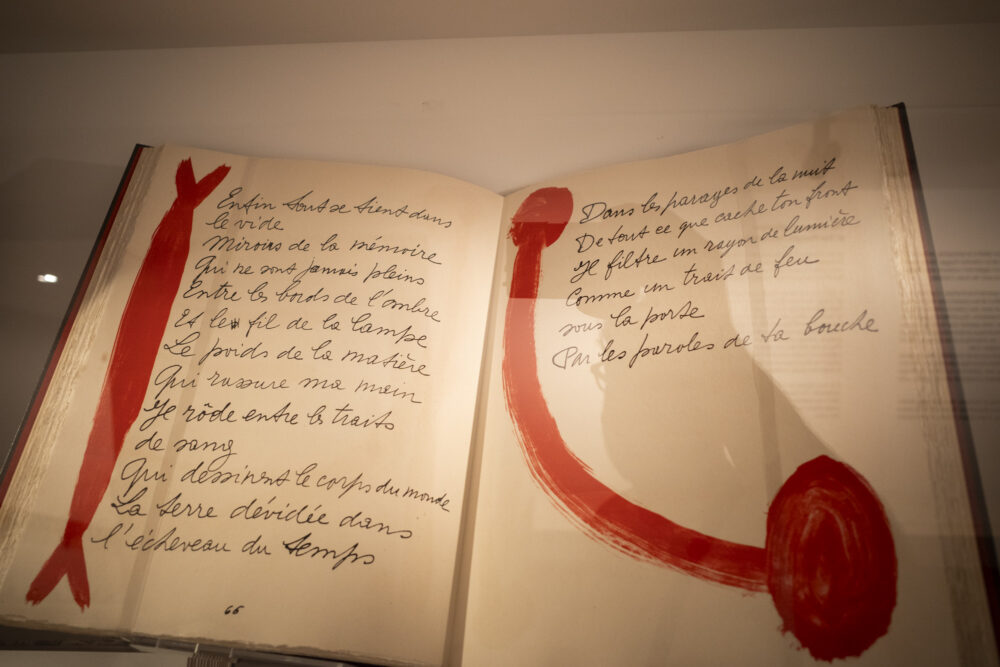 Enfin tout se tient dans
le vide
Miroirs de la mémoire
Qui ne sont jamais pleins
Entre les bords de l'ombre
Et le fil de la lampe
Le poids de la matière
Qui rassure ma main
Je rôde entre les traits
de sang
Qui dessinent le corps du monde
La terre dévidée dans
l'écheveau du temps
66
Dans les parages de la nuit
De tout ce que cache ton front
Je filtre un rayon de lumière
Comme un trait de feu
sous la porte
Par les paroles de ta bouche